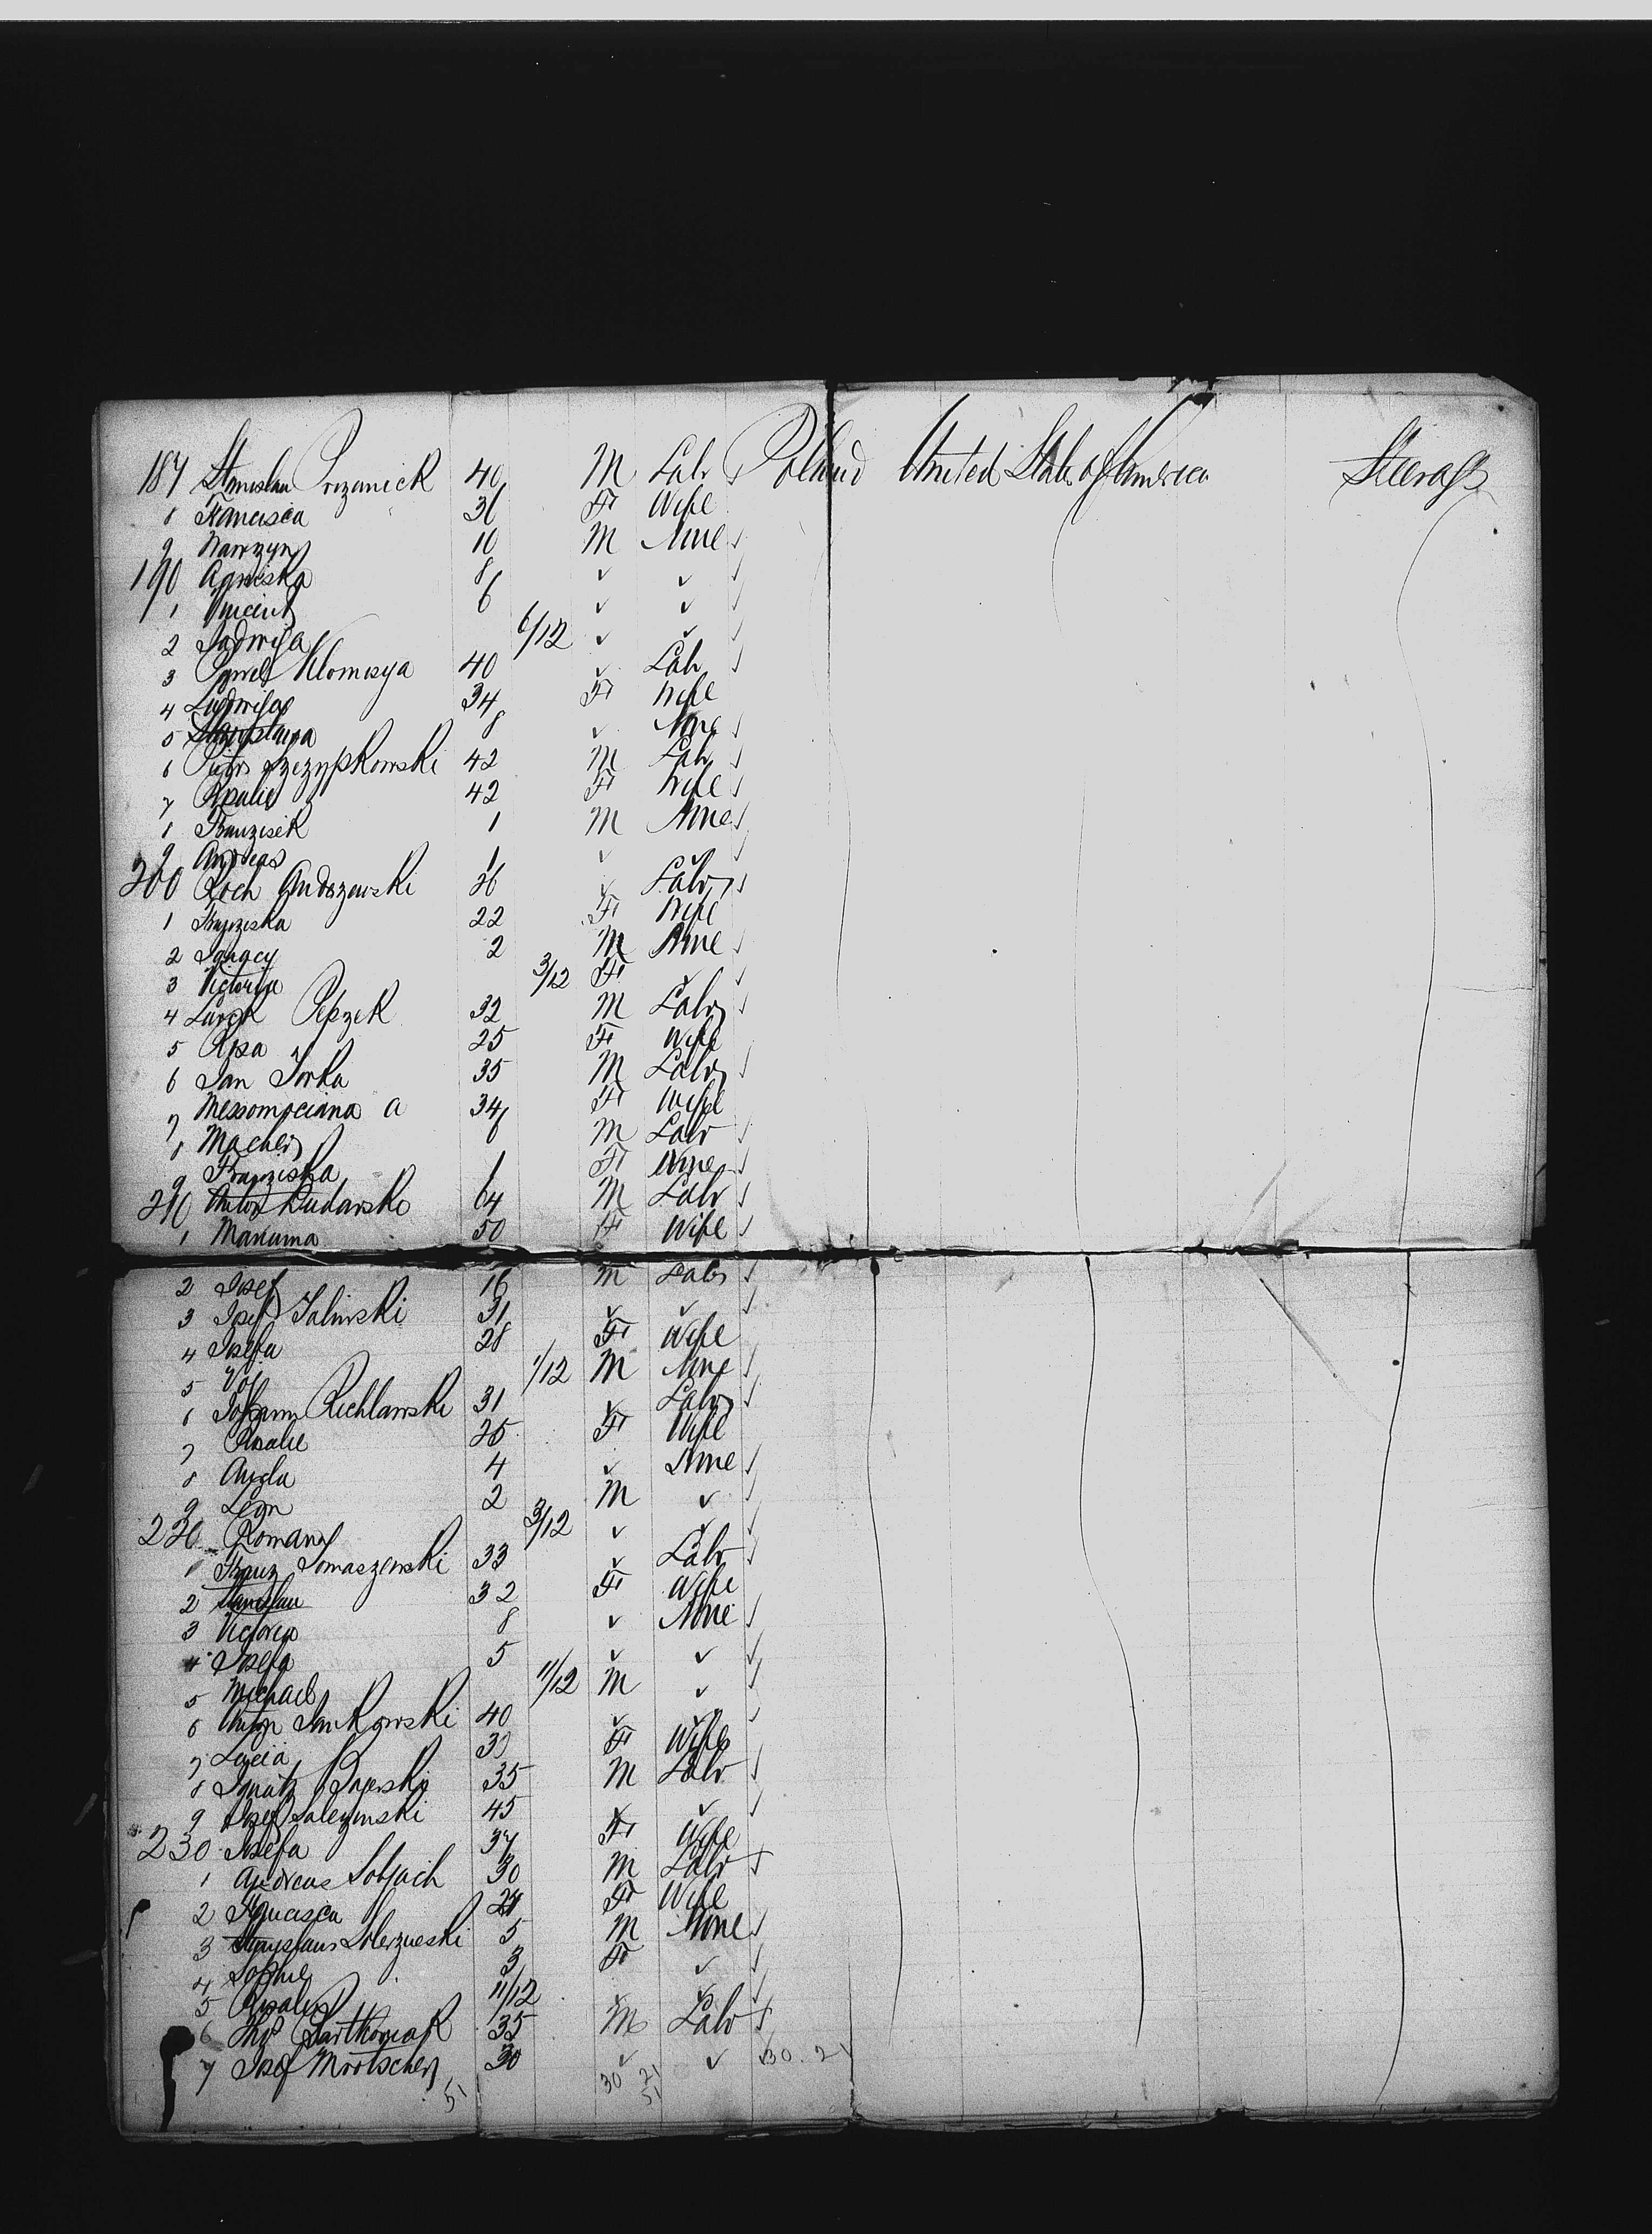 187 Stanislau Przanick 40 M Labr Poland United States of America Steerage
8 Francisca 36 F Wife
9 Nawrzyn 10 M None
190 Agniska 8 ✓ ✓
1 Vincent 6 ✓ ✓
2 Jadwiga 6/12 ✓ ✓
3 Pawel Klomisya 40 ✓ Labr
4 Ludwiga 34 F Wife
5 8 ✓ None
6 Piotr Szczypkowski 42 M Labr
7 Rosalie 42 F Wife
8 Franzisek 1 M None
9 Andreas 1 ✓ ✓
200 Roch Andrzewski 26 ✓ Labr
1 Franziska 22 F Wife
2 Ignacy 2 M None
3 Victoria 3/12 F ✓
4 Pepzek 32 M Labr
5 Rosa 25 F Wife
6 Jan Jorka 35 M Labr
7 Messompciana a 34 F Wife
8 Macher 6 M Labr
9 Franziska 1 F None
210 Anton Rudarski 64 M Labr
1 Marianna 50 F Wife
2 Josef 16 M Labr
3 Josef Jalinski 31 ✓ ✓
4 Josefa 28 F Wife
5 1/12 M None
6 Johann Richlawski 31 ✓ Labr
7 Rosalie 25 F Wife
8 Angela 4 ✓ None
9 Leon 2 M ✓
220 Roman 3/12 ✓ ✓
1 Franz Tomaszewski 33 ✓ Labr
2 Stanislau 32 F Wife
3 Victoria 8 ✓ None
4 Josefa 5 ✓ ✓
5 Michael 11/12 M ✓
6 Anton Jankowski 40 ✓ ✓
7 Lucia 39 F Wife
8 Ignatz Bajerski 35 M Labr
9 Josef Salezinski 45 ✓ ✓
230 Josefa 37 F Wife
1 Andreas Sobjach 30 M Labr
2 Francisca 24 F Wife
3 Stanislaus Solerzueski 5 M None
4 Sophie 3 F ✓
5 Rosalie 11/12 ✓ ✓
6 Bartkoviak 35 M Labr
7 Josef Mrotscher 30 ✓ ✓ 30. 21
51 30 21
51